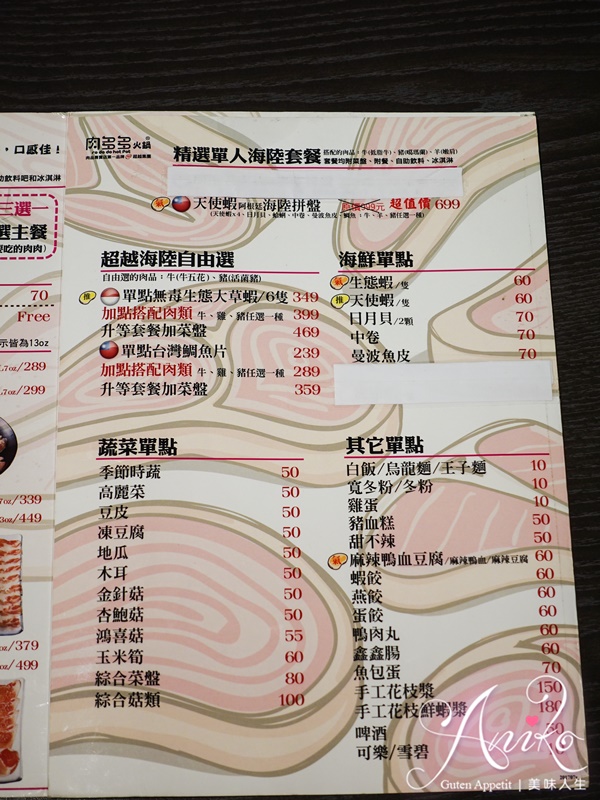 ，口感佳！
助飲料吧和冰淇淋
三選一
選主餐
要吃的肉肉)
70
Free
示皆為13oz
.7oz/289
.7oz/299
7oz/339
3oz/449
oz/379
oz/499
肉多多火鍋
精選單人海陸套餐
天使蝦阿根廷海陸拼盤 超值價699
(天使蝦x4、日月貝、蛤蜊、中卷、曼波魚皮、鯛魚；牛、羊、豬任選一種)
超越海陸自由選
自由選的肉品：牛(牛五花)、豬(活菌豬)
推 單點無毒生態大草蝦/6隻 349
加點搭配肉類 牛、雞、豬任選一種 399
升等套餐加菜盤 469
單點台灣鯛魚片 239
加點搭配肉類 牛、雞、豬任選一種 289
升等套餐加菜盤 359
海鮮單點
生態蝦/隻 60
推 天使蝦/隻 60
日月貝/2顆 70
中卷 70
曼波魚皮 70
蔬菜單點
季節時蔬 50
高麗菜 50
豆皮 50
凍豆腐 50
地瓜 50
木耳 50
金針菇 50
杏鮑菇 50
鴻喜菇 55
玉米筍 60
綜合菜盤 80
綜合菇類 100
其它單點
白飯/烏龍麵/王子麵 10
寬冬粉/冬粉 10
雞蛋 10
豬血糕 50
甜不辣 50
麻辣鴨血豆腐/麻辣鴨血/麻辣豆腐 60
蝦餃 60
燕餃 60
蛋餃 60
鴨肉丸 60
鑫鑫腸 60
魚包蛋 70
手工花枝漿 150
手工花枝鮮蝦漿 180
啤酒
可樂/雪碧
Aniko
Guten Appetit | 美味人生